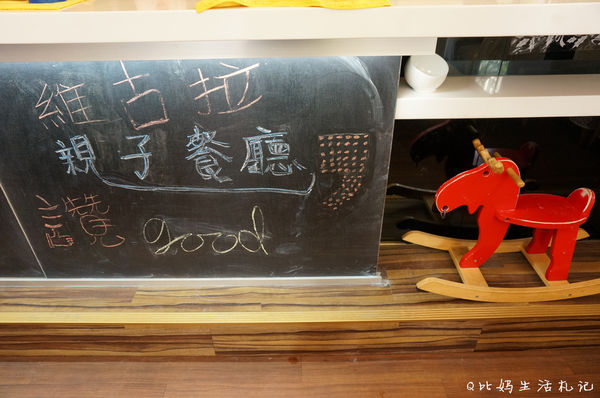 維古拉
親子餐廳
讚
good
Q比媽生活札記